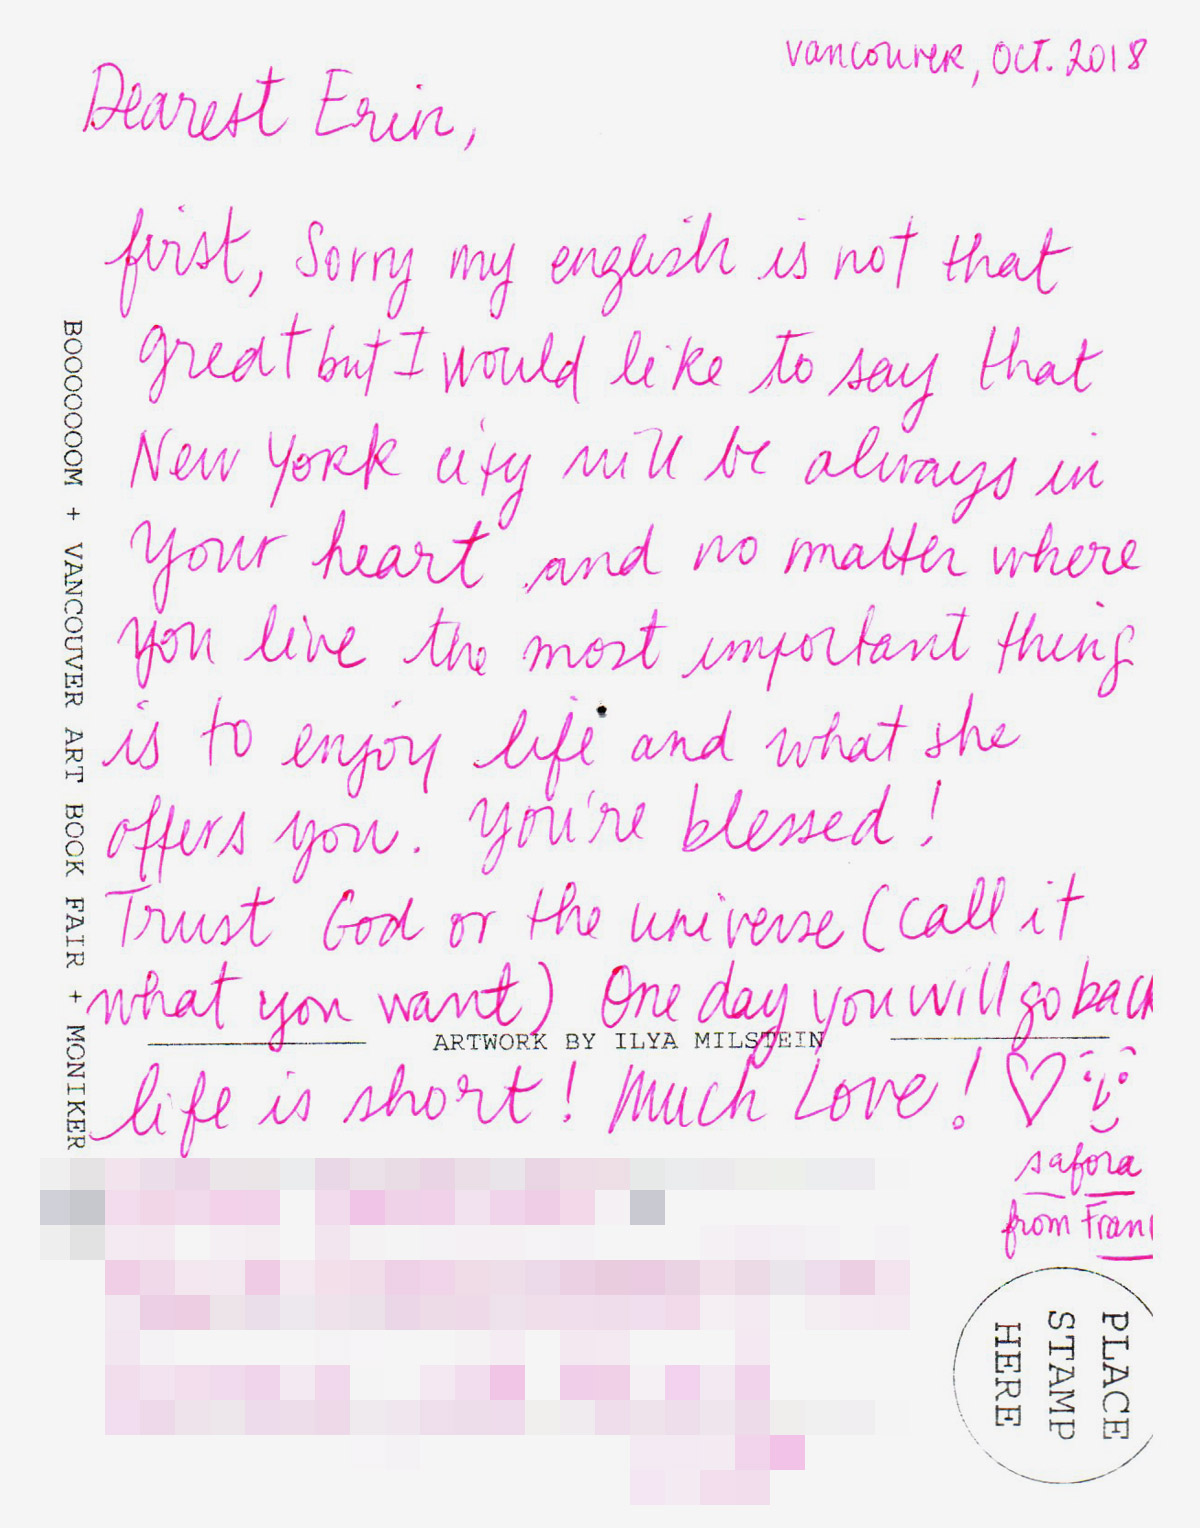 Vancouver, Oct. 2018
Dearest Erin,
first, Sorry my english is not that
great but I would like to say that
New York city will be always in
your heart and no matter where
you live the most important thing
is to enjoy life and what she
offers you. You're blessed!
Trust God or the universe (call it
what you want) One day you will go back
ARTWORK BY ILYA MILSTEIN
life is short! Much Love!
safora
from Fran
BOOOOOOOM + VANCOUVER ART BOOK FAIR + MONIKER
PLACE
STAMP
HERE